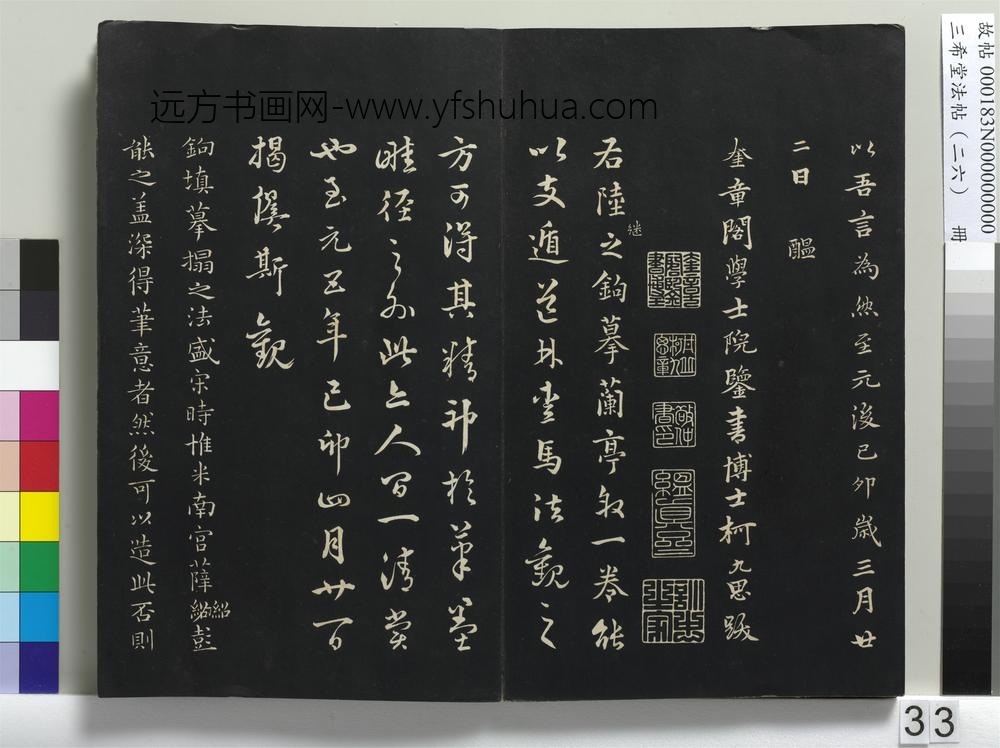 以吾言為然至元後己卯歲三月廿
二日 醞
奎章閣學士院鑒書博士柯九思跋
右陸繼之鉤摹蘭亭敘一卷能
以支遁道林愛馬法觀之
方可得其精神於筆墨
畦徑之外此亦人間一清賞
也至元五年己卯四月廿一日
揭傒斯觀
鉤填摹搨之法盛宋時惟米南宮薛紹彭
能之盖深得筆意者然後可以造此否則
远方书画网-www.yfshuhua.com
故帖 000183N000000000
三希堂法帖（二六） 册
33